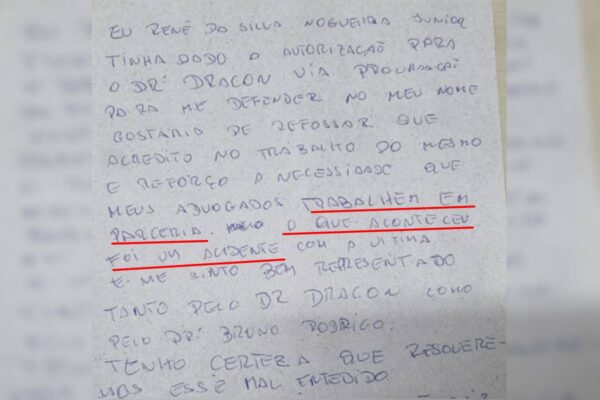 EU RENÉ DA SILVA NOGUEIRA JUNIOR
TINHA DADO A AUTORIZAÇÃO PARA
O DR. DRACON VIA PROCURAÇÃO
PARA ME DEFENDER NO MEU NOME
GOSTARIA DE REFOSSAR QUE
ACREDITO NO TRABALHO DO MESMO
E REFORÇO A NECESSIDADE QUE
MEUS ADVOGADOS TRABALHEM EM
PARCERIA. O QUE ACONTECEU
FOI UM ACIDENTE COM A VITIMA
E ME SINTO BEM REPRESENTADO
TANTO PELO DR DRACON COMO
PELO DR. BRUNO RODRIGO.
TENHO CERTEZA QUE RESOLVERE-
MOS ESSE MAL ENTEDIDO